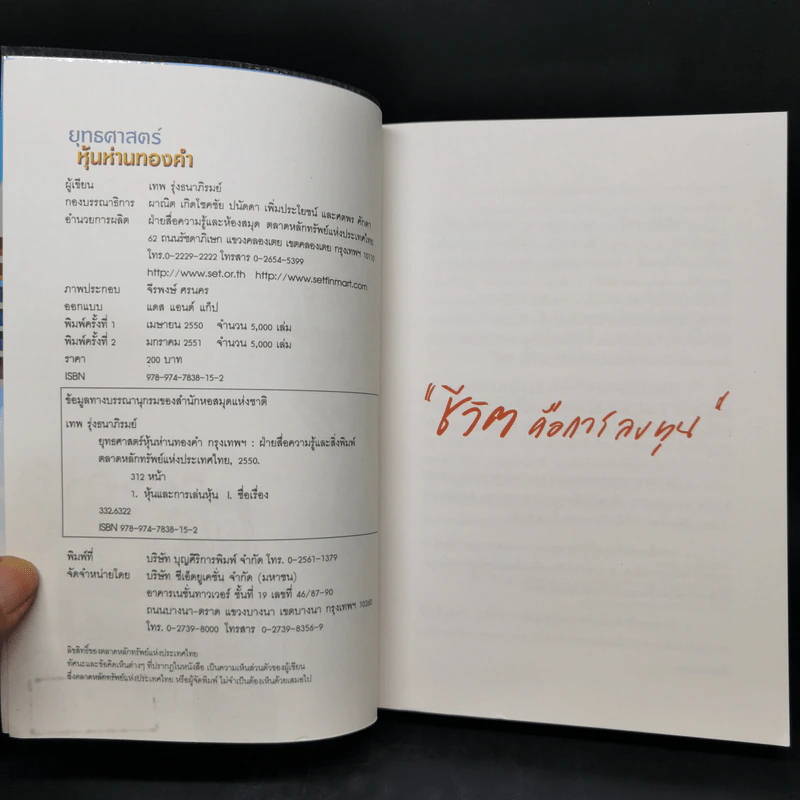 ยุทธศาสตร์
หุ้นห่านทองคำ
ผู้เขียน เทพ รุ่งธนาภิรมย์
กองบรรณาธิการ ผาณิต เกิดโชคชัย ปนัดดา เพิ่มประโยชน์ และศตพร ศักดา
อำนวยการผลิต ฝ่ายสื่อความรู้และห้องสมุด ตลาดหลักทรัพย์แห่งประเทศไทย
62 ถนนรัชดาภิเษก แขวงคลองเตย เขตคลองเตย กรุงเทพฯ 10110
โทร.0-2229-2222 โทรสาร 0-2654-5399
http://www.set.or.th http://www.settinmart.com
ภาพประกอบ จีรพงษ์ ศรนคร
ออกแบบ แดส แอนด์ แก๊ป
พิมพ์ครั้งที่ 1 เมษายน 2550 จำนวน 5,000 เล่ม
พิมพ์ครั้งที่ 2 มกราคม 2551 จำนวน 5,000 เล่ม
ราคา 200 บาท
ISBN 978-974-7838-15-2
ข้อมูลทางบรรณานุกรมของสำนักหอสมุดแห่งชาติ
เทพ รุ่งธนาภิรมย์
ยุทธศาสตร์หุ้นห่านทองคำ กรุงเทพฯ : ฝ่ายสื่อความรู้และสิ่งพิมพ์
ตลาดหลักทรัพย์แห่งประเทศไทย, 2550.
312 หน้า
1. หุ้นและการเล่นหุ้น I. ชื่อเรื่อง
332.6322
ISBN 978-974-7838-15-2
พิมพ์ที่ บริษัท บุญศิริการพิมพ์ จำกัด โทร. 0-2561-1379
จัดจำหน่ายโดย บริษัท ซีเอ็ดยูเคชั่น จำกัด (มหาชน)
อาคารเนชั่นทาวเวอร์ ชั้นที่ 19 เลขที่ 46/87-90
ถนนบางนา-ตราด แขวงบางนา เขตบางนา กรุงเทพฯ 10260
โทร. 0-2739-8000 โทรสาร 0-2739-8356-9
ลิขสิทธิ์ของตลาดหลักทรัพย์แห่งประเทศไทย
ทัศนะและข้อคิดเห็นต่างๆ ที่ปรากฏในหนังสือ เป็นความเห็นส่วนตัวของผู้เขียน
ซึ่งตลาดหลักทรัพย์แห่งประเทศไทย หรือผู้จัดพิมพ์ ไม่จำเป็นต้องเห็นด้วยเสมอไป
"ชีวิต คือการลงทุน"